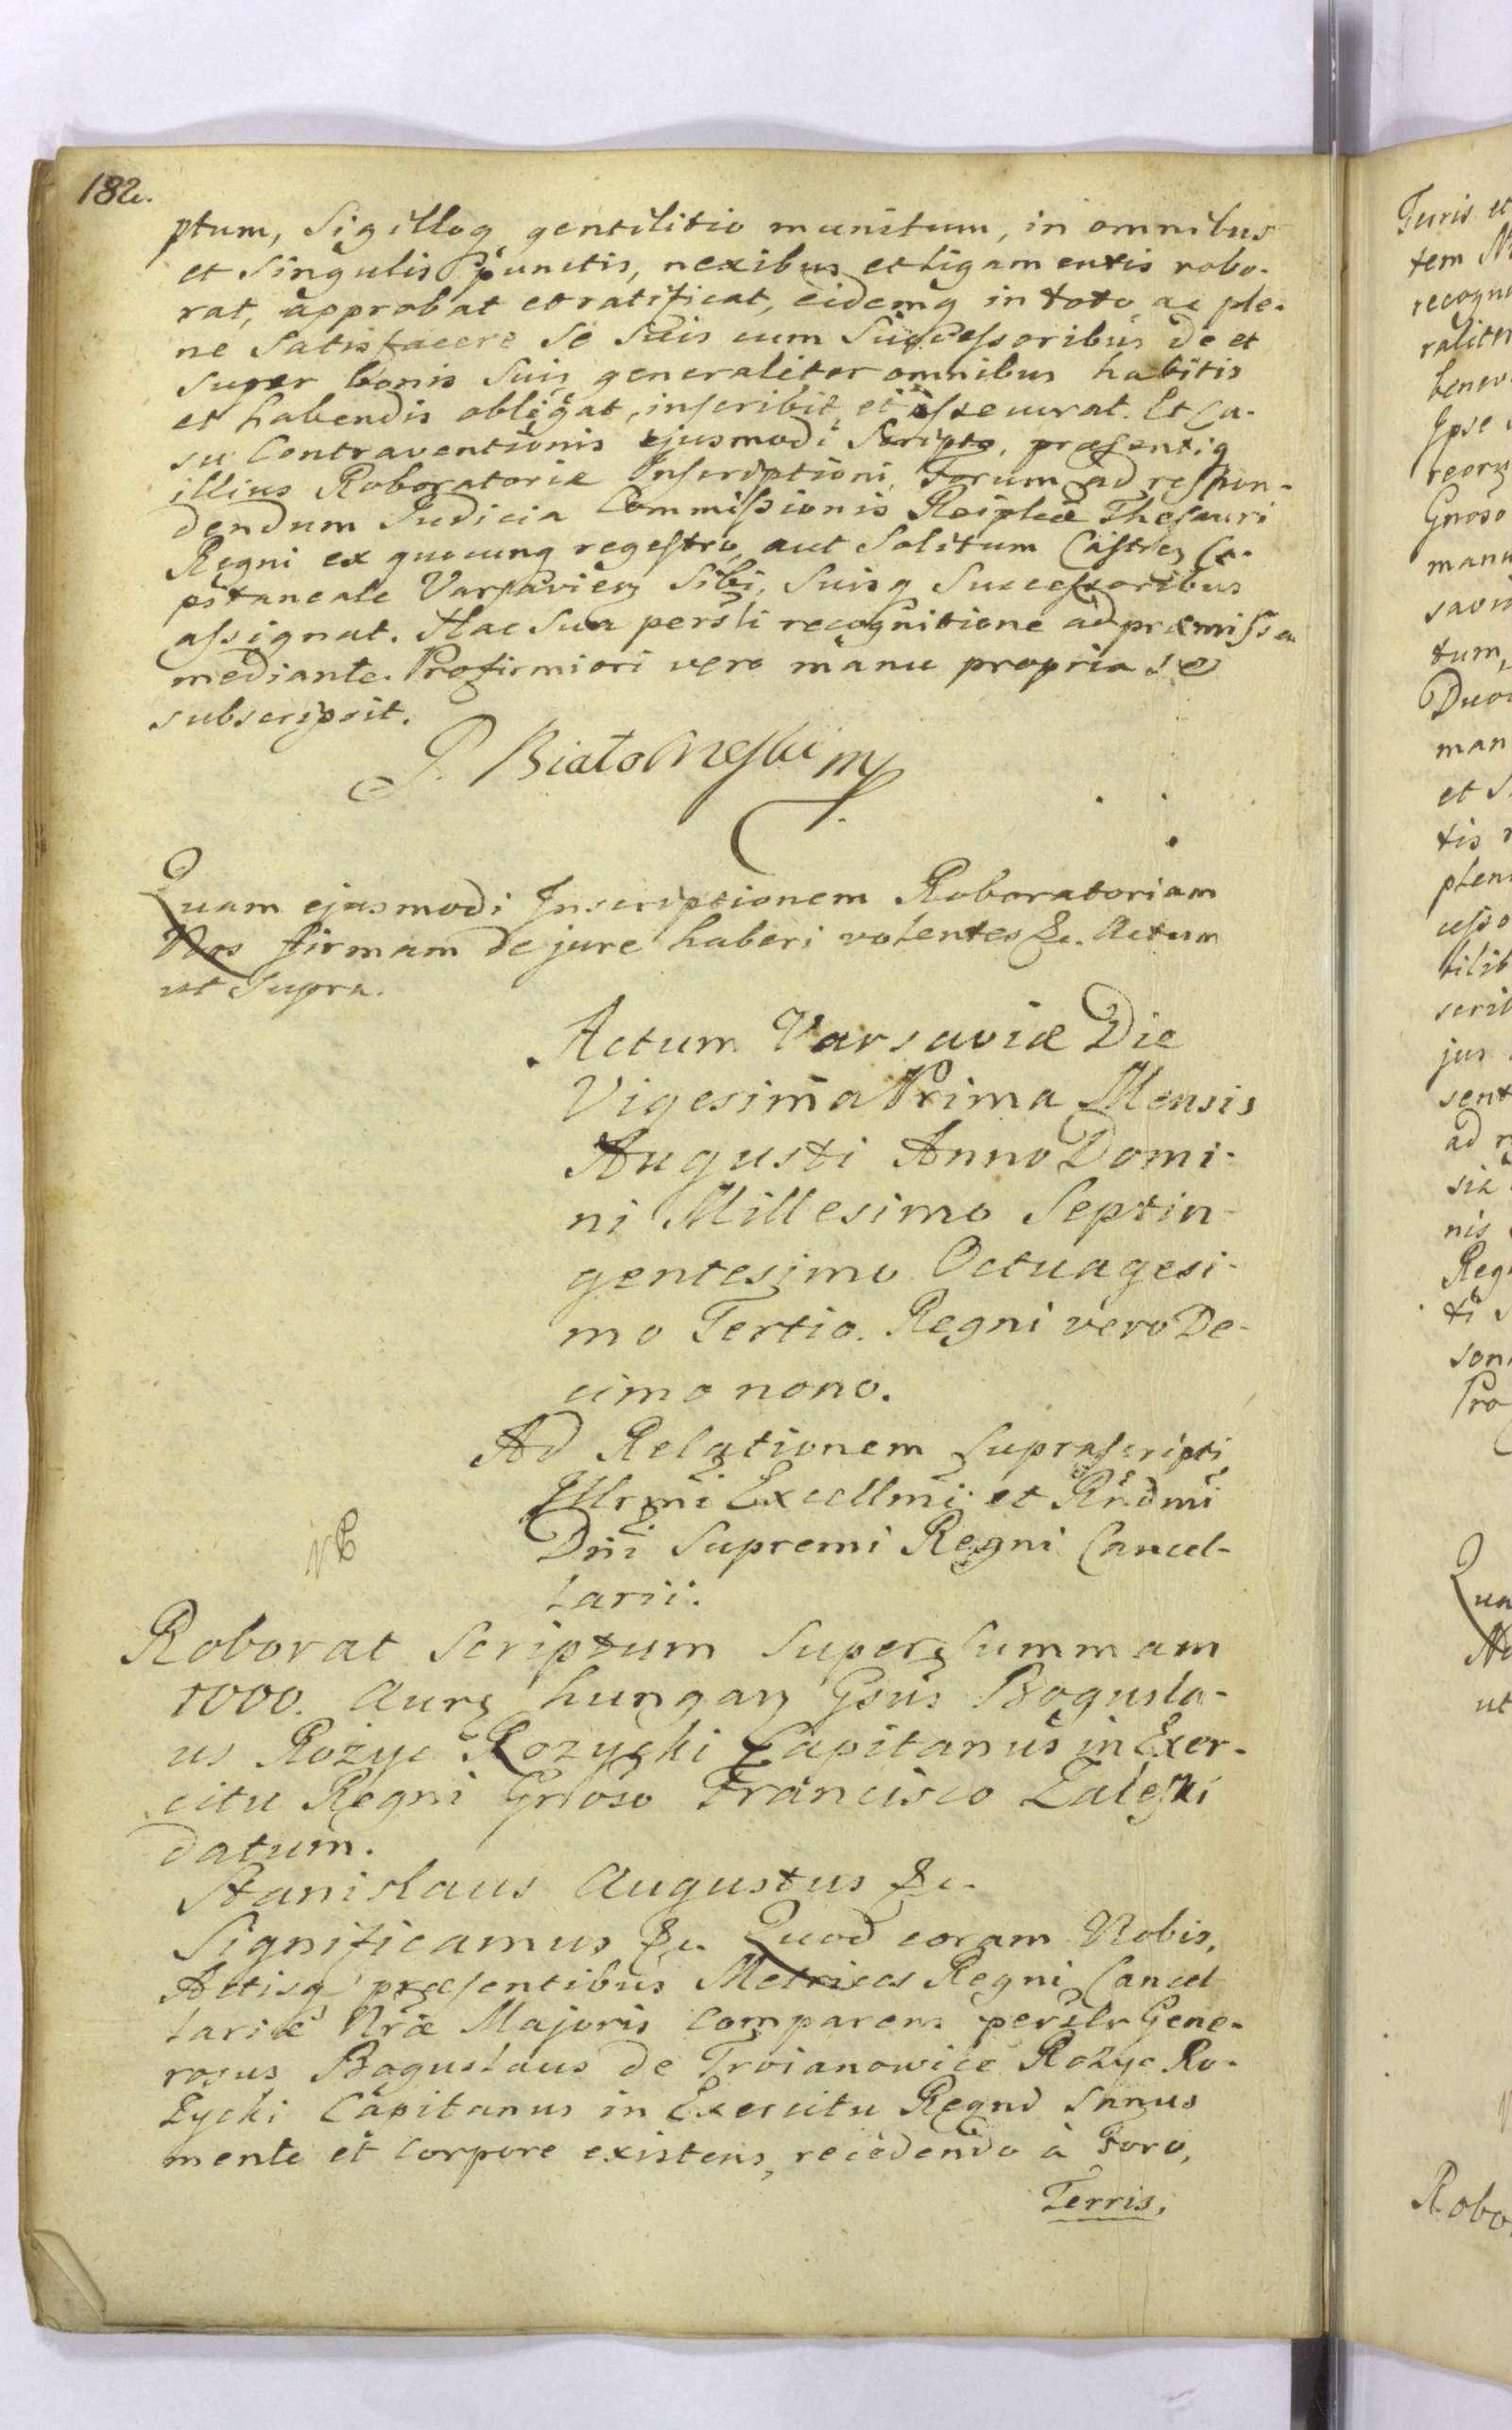 182.
ptum, Sigilloq gentilitio munitum, in omnibus
et Singulis punctis, nexibus et Ligamentis robo-
rat, approbat et ratificat, eidemq in toto, ac ple-
ne Satisfacere Se Suis cum Successoribus de et
Super bonis Suis generaliter omnibus habitis
et habendis obligat, inscribit, et assecurat. Et Ca-
su Contraventionis ejusmodi Scripto, præsentiq
illius Roboratoriæ Inscriptioni, Forum ad respon-
dendum Judicia Commissionis Reiplcæ Thesauri
Regni ex quocunq regestro, aut Solitum Castren Ca-
pitaneale Varsavien Sibi, Suisq Successoribus
assignat. Hac Sua persli recognitione ad præmissa
mediante. Pro firmiori vero manu propria se
subscripsit.
Quam ejusmodi Inscriptionem Roboratoriam
Nos firmam de jure haberi volentes &c. Actum
ut Supra.
Actum Varsaviæ Die
Vigesima Prima Mensis
Augusti Anno Domi-
ni Millesimo Septin-
gentesimo Octuagesi-
mo Tertio. Regni vero De-
cimo nono.
Ad Relationem Suprascripti
Illrmi Excellmi et Rndmi
Dni Supremi Regni Cancel-
larii.
Roborat Scriptum Super Summam
1000. Aur hungar Gsus Bogusla-
us Rożyc Rozycki Capitanus in Exer-
citu Regni Gnoso Francisco Zaleski
datum.
Stanislaus Augustus &c.
Significamus &c. Quod coram Nobis,
Actisq præsentibus Metrices Regni Cancel
lariæ Nræ Majoris Comparens perslr Gene-
rosus Boguslaus de Troianowice Rożyc Ro-
życki Capitanus in Exercitu Regni Sanus
mente et Corpore existens, recedendo à Foro,
Terris,
Juris et
tem
recogn
raliter
benev
Ipse
reorq
Gnoso
manu
savi
tum,
Duo
man
et S
tis
plen
cesso
bilib
scrib
jus
sent
ad r
nis
Regn
son
Pro
Qua
No
ut
Robo